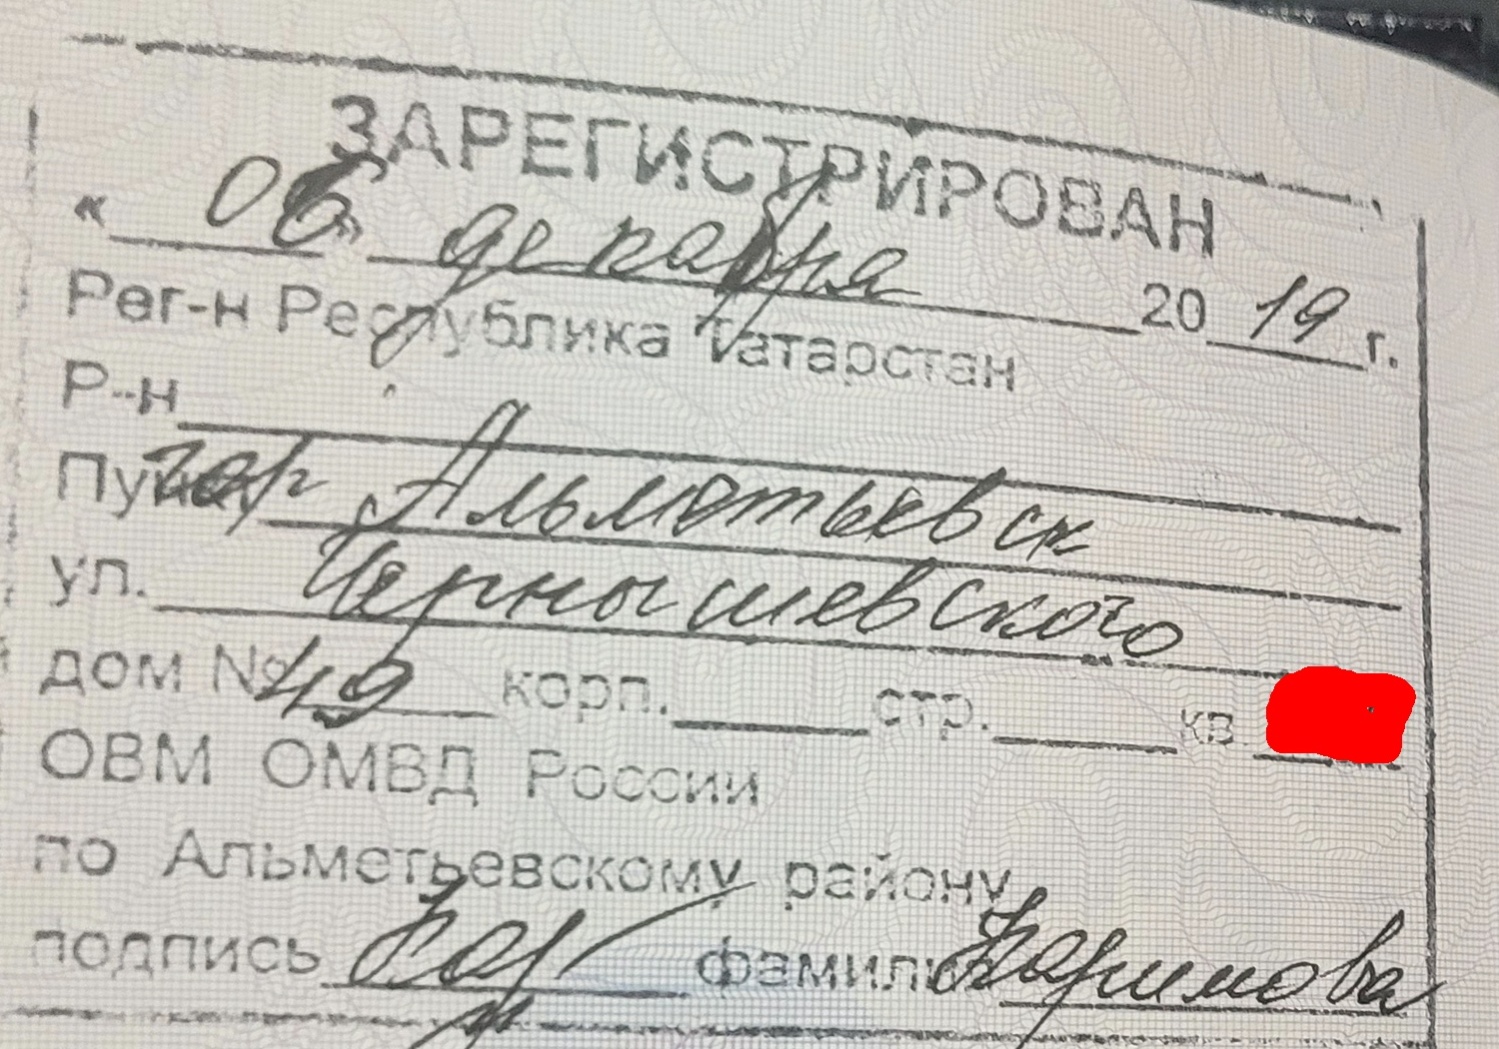 ЗАРЕГИСТРИРОВАН
« 06 » декабря 20 19 г.
Рег-н Республика Татарстан
Р-н
Пункт гор Альметьевск
ул. Чернышевского
дом № 49 корп. стр. кв.
ОВМ ОМВД России
по Альметьевскому району
подпись фамилия Каримова